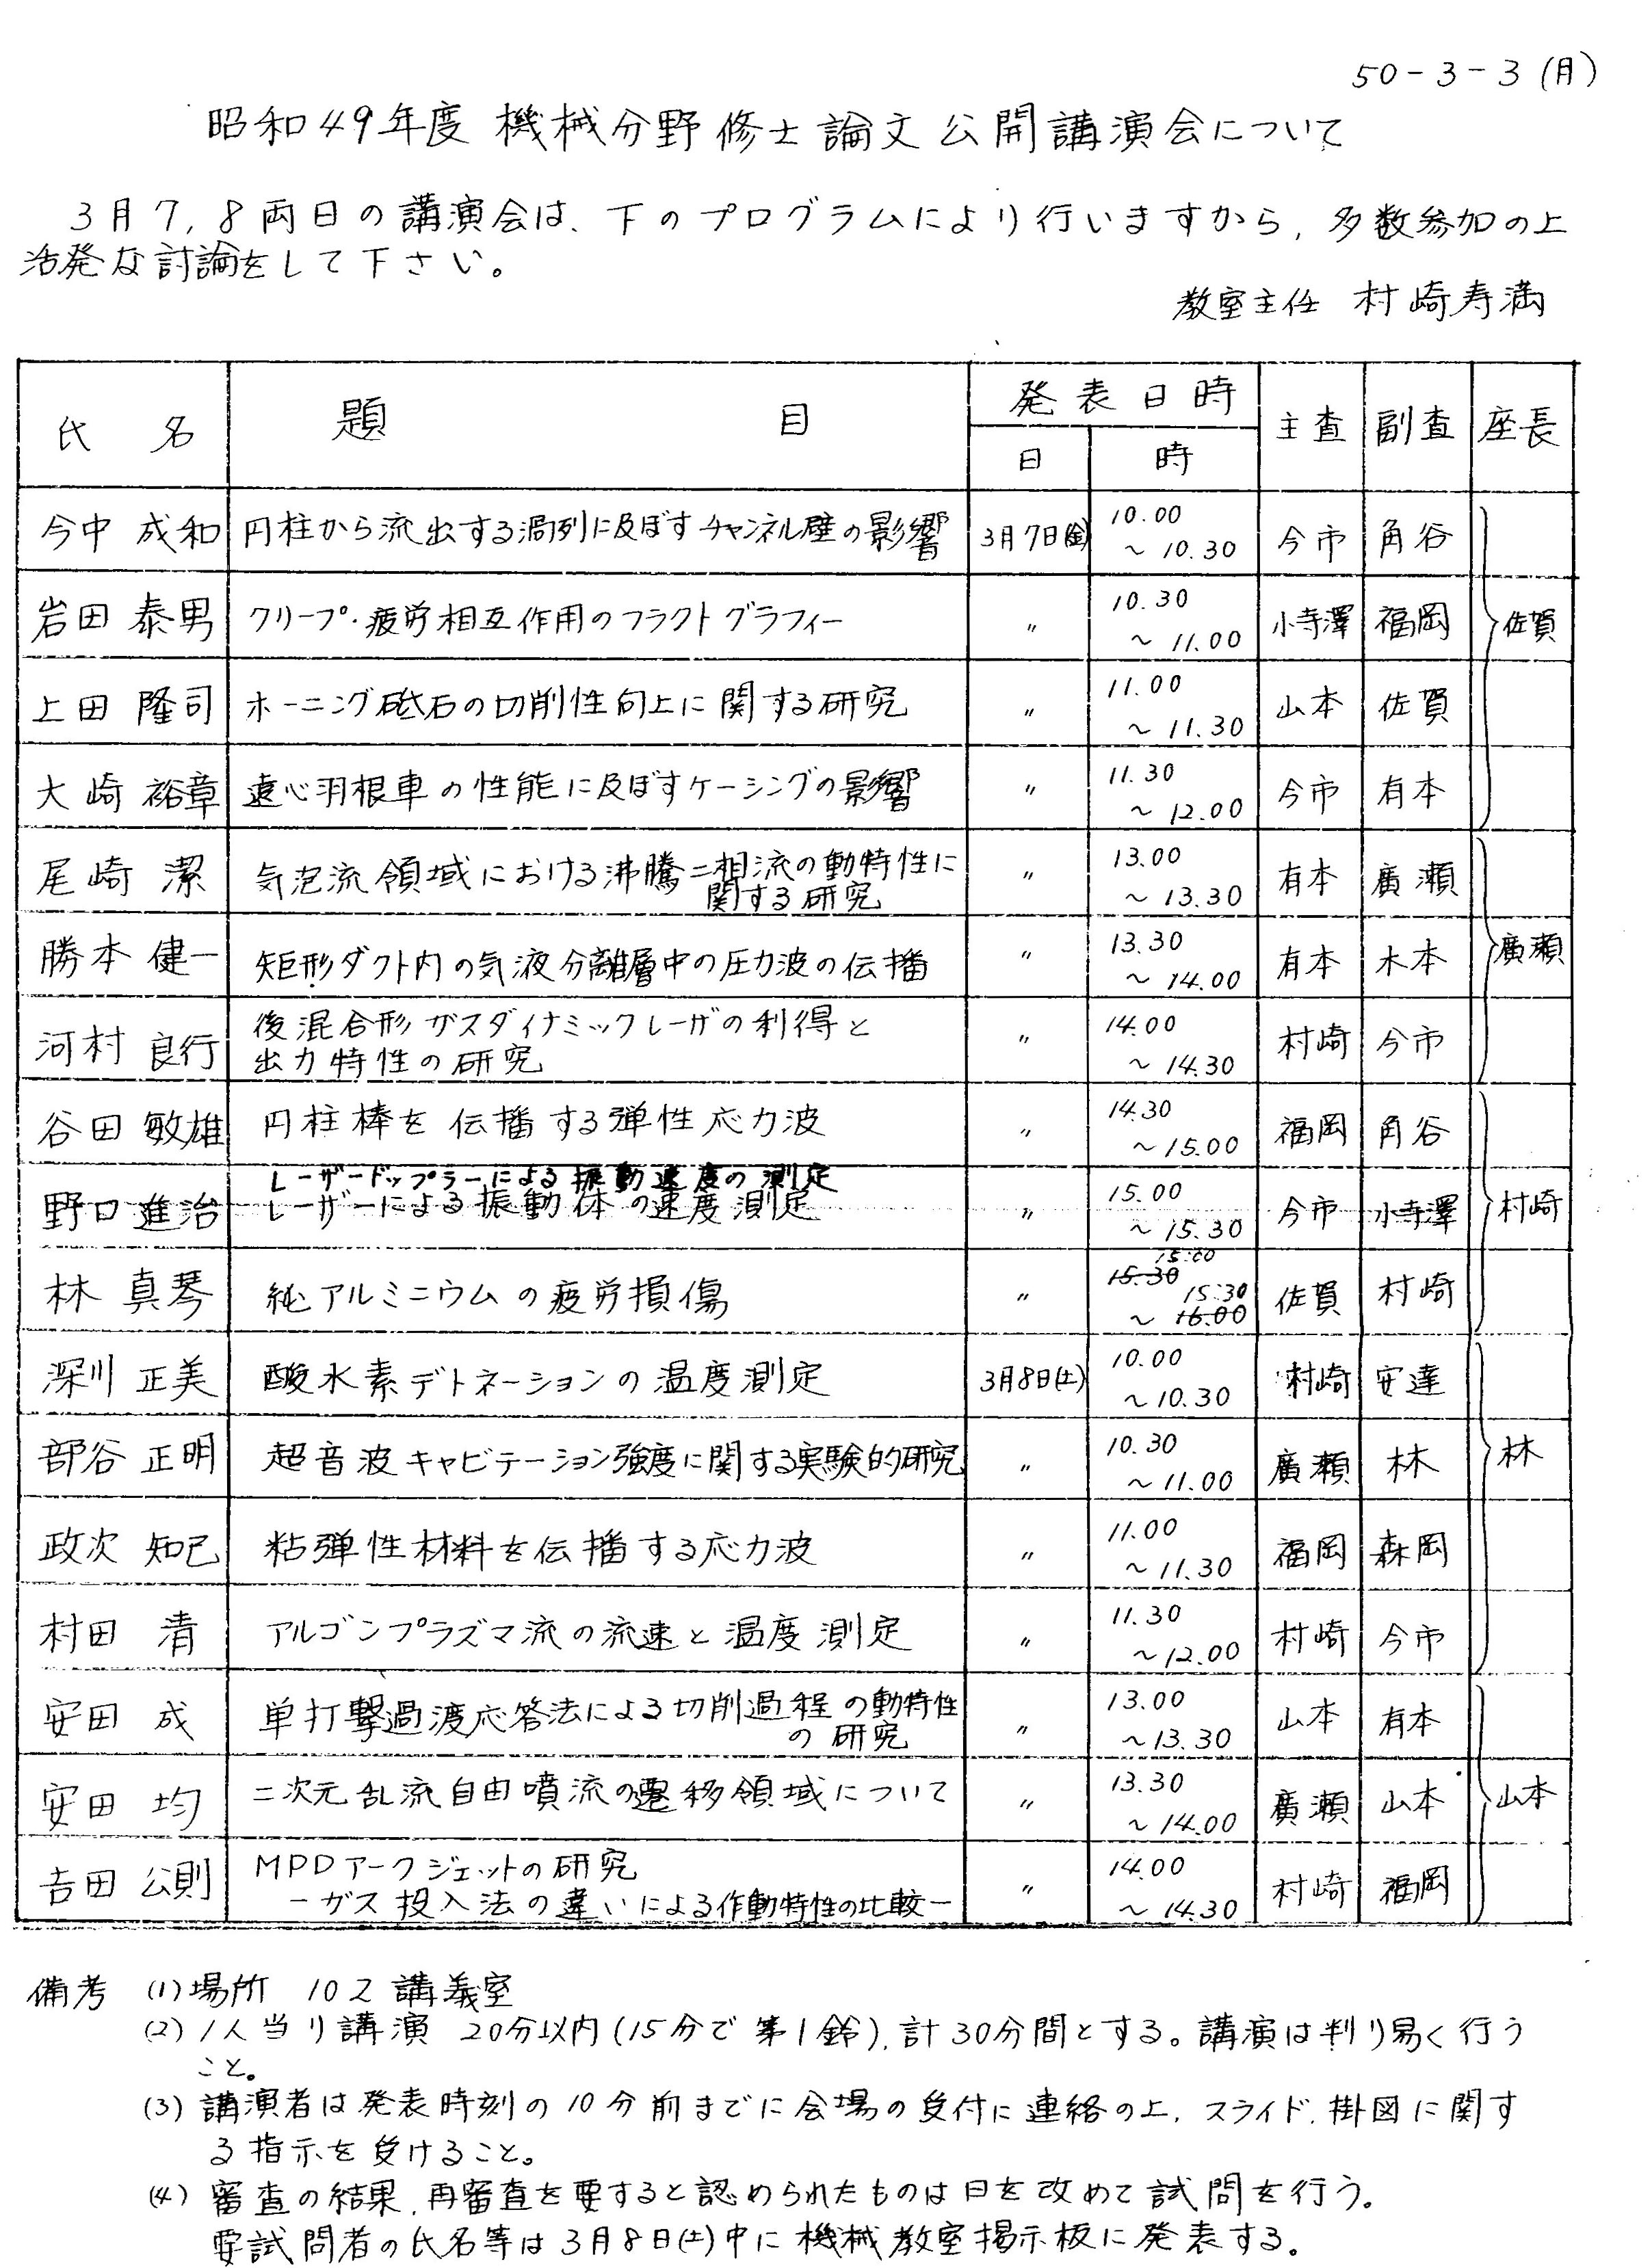 50-3-3(月)
昭和49年度 機械分野修士論文公開講演会について
3月7,8両日の講演会は、下のプログラムにより行いますから,多数参加の上
活発な討論をして下さい。
教室主任 村崎寿満
氏 名 題 目 発表日時 主査 副査 座長
日 時
今中 成和 円柱から流出する渦列に及ぼすチャンネル壁の影響 3月7日(金) 10.00 ~10.30 今市 角谷
岩田 泰男 クリープ・疲労相互作用のフラクトグラフィー 〃 10.30 ~11.00 小寺澤 福岡 佐賀
上田 隆司 ホーニング砥石の切削性向上に関する研究 〃 11.00 ~11.30 山本 佐賀
大崎 裕章 遠心羽根車の性能に及ぼすケーシングの影響 〃 11.30 ~12.00 今市 有本
尾崎 潔 気泡流領域における沸騰二相流の動特性に
関する研究 〃 13.00 ~13.30 有本 廣瀬
勝本 健一 矩形ダクト内の気液分離層中の圧力波の伝播 〃 13.30 ~14.00 有本 木本 廣瀬
河村 良行 後混合形ガスダイナミックレーザの利得と
出力特性の研究 〃 14.00 ~14.30 村崎 今市
谷田 敏雄 円柱棒を伝播する弾性応力波 〃 14.30 ~15.00 福岡 角谷
レーザードップラーによる振動速度の測定
野口 進治 レーザーによる振動体の速度測定 〃 15.00 ~15.30 今市 小寺澤 村崎
林 真琴 純アルミニウムの疲労損傷 〃 15:00 15.30 15:30 ~16.00 佐賀 村崎
深川 正美 酸水素デトネーションの温度測定 3月8日(土) 10.00 ~10.30 村崎 安達
部谷 正明 超音波キャビテーション強度に関する実験的研究 〃 10.30 ~11.00 廣瀬 林 林
政次 知己 粘弾性材料を伝播する応力波 〃 11.00 ~11.30 福岡 森岡
村田 清 アルゴンプラズマ流の流速と温度測定 〃 11.30 ~12.00 村崎 今市
安田 成 単打撃過渡応答法による切削過程の動特性
の研究 〃 13.00 ~13.30 山本 有本
安田 均 二次元乱流自由噴流の遷移領域について 〃 13.30 ~14.00 廣瀬 山本 山本
吉田 公則 MPDアークジェットの研究
-ガス投入法の違いによる作動特性の比較- 〃 14.00 ~14.30 村崎 福岡
備考 (1)場所 102講義室
(2)1人当り講演 20分以内(15分で第1鈴),計30分間とする。講演は判り易く行う
こと。
(3)講演者は発表時刻の10分前までに会場の受付に連絡の上,スライド,掛図に関す
る指示を受けること。
(4)審査の結果,再審査を要すると認められたものは日を改めて試問を行う。
要試問者の氏名等は3月8日(土)中に機械教室掲示板に発表する。